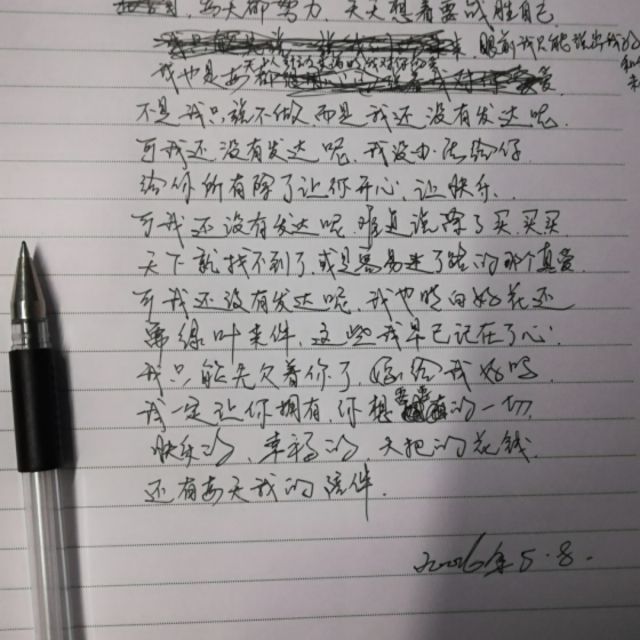 每天都努力，天天想着要战胜自己
眼前我只能
我也是
不是我只说不做，而是我还没有发达呢，
可我还没有发达呢，我没办法给你
给你所有除了让你开心，让快乐、
可我还没有发达呢，难道说除了买，买买
天下就找不到了，或是容易迷了路的那个真爱，
可我还没有发达呢，我也明白好花还
需绿叶来伴，这些我早已记在了心，
我只能先欠着你了，嫁给我好吗
我一定让你拥有，你想要的一切，
快乐的，幸福的，大把的花钱，
还有每天我的陪伴，
2026年5.8.